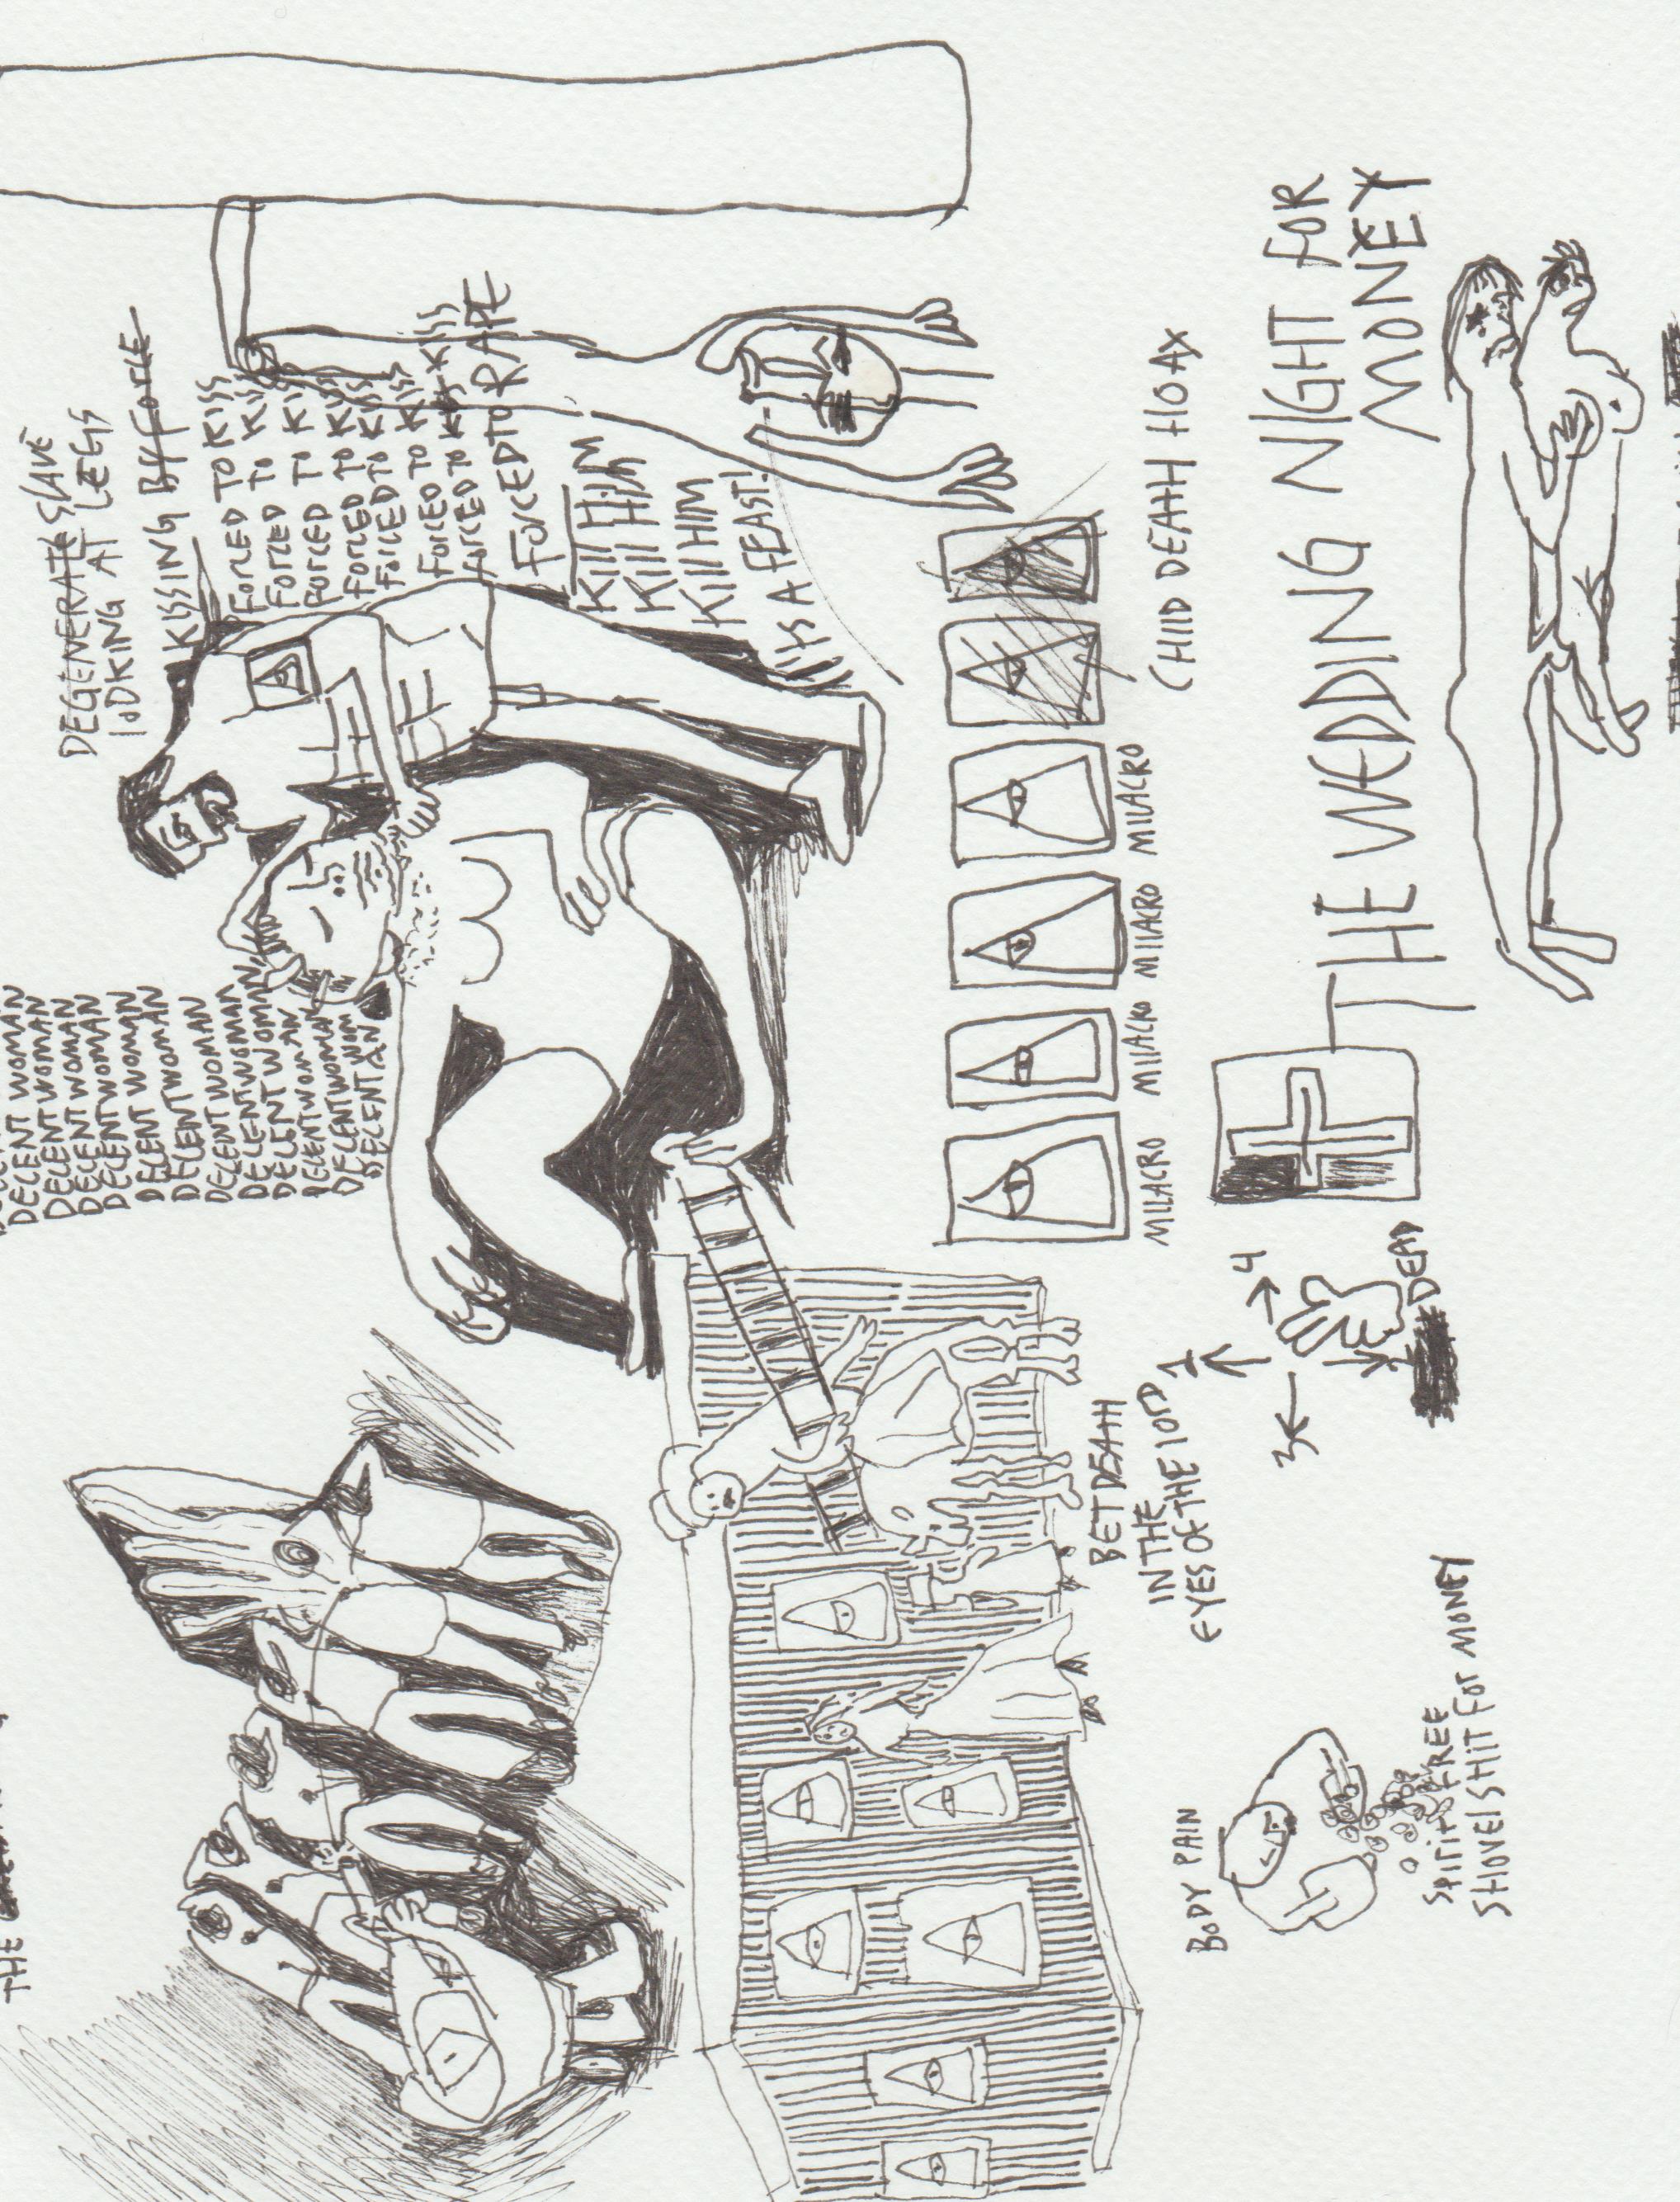 THE
DECENT WOMAN
DECENT WOMAN
DECENT WOMAN
DECENT WOMAN
DECENT WOMAN
DECENT WOMAN
DECENT WOMAN
DECENT WOMAN
DECENT WOMAN
DECENT WOMAN
DECENT WOMAN
DECENT WOM
DECENT AN
DEGENERATE SLAVE
LOOKING AT LEGS
KISSING BY FORCE
FORCED TO KISS
FORCED TO KISS
FORCED TO KISS
FORCED TO KISS
FORCED TO KISS
FORCED TO KISS
FORCED TO KISS
FORCED TO RAPE
KILL HIM
KILL HIM
KILL HIM
IT'S A FEAST!
MILACRO
MILACRO
MILACRO
MILACRO
CHILD DEATH HOAX
BET DEATH
IN THE
EYES OF THE LORD
BODY PAIN
SPIRIT FREE
SHOVEL SHIT FOR MONEY
1
3
4
DEAD
THE WEDDING NIGHT FOR
MONEY